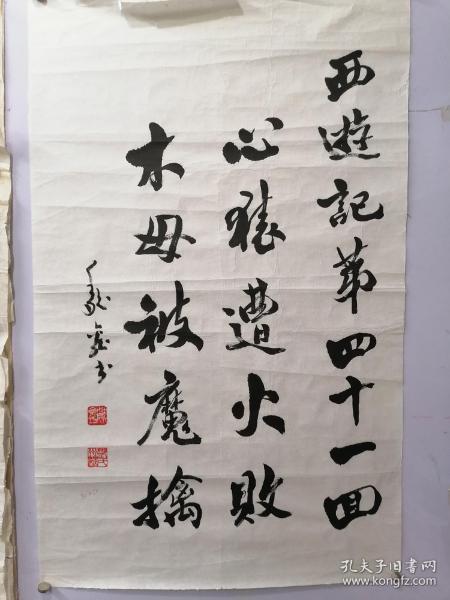 西遊記第四十一回
心猿遭火敗
木母被魔擒
书
孔夫子旧书网
www.kongfz.com